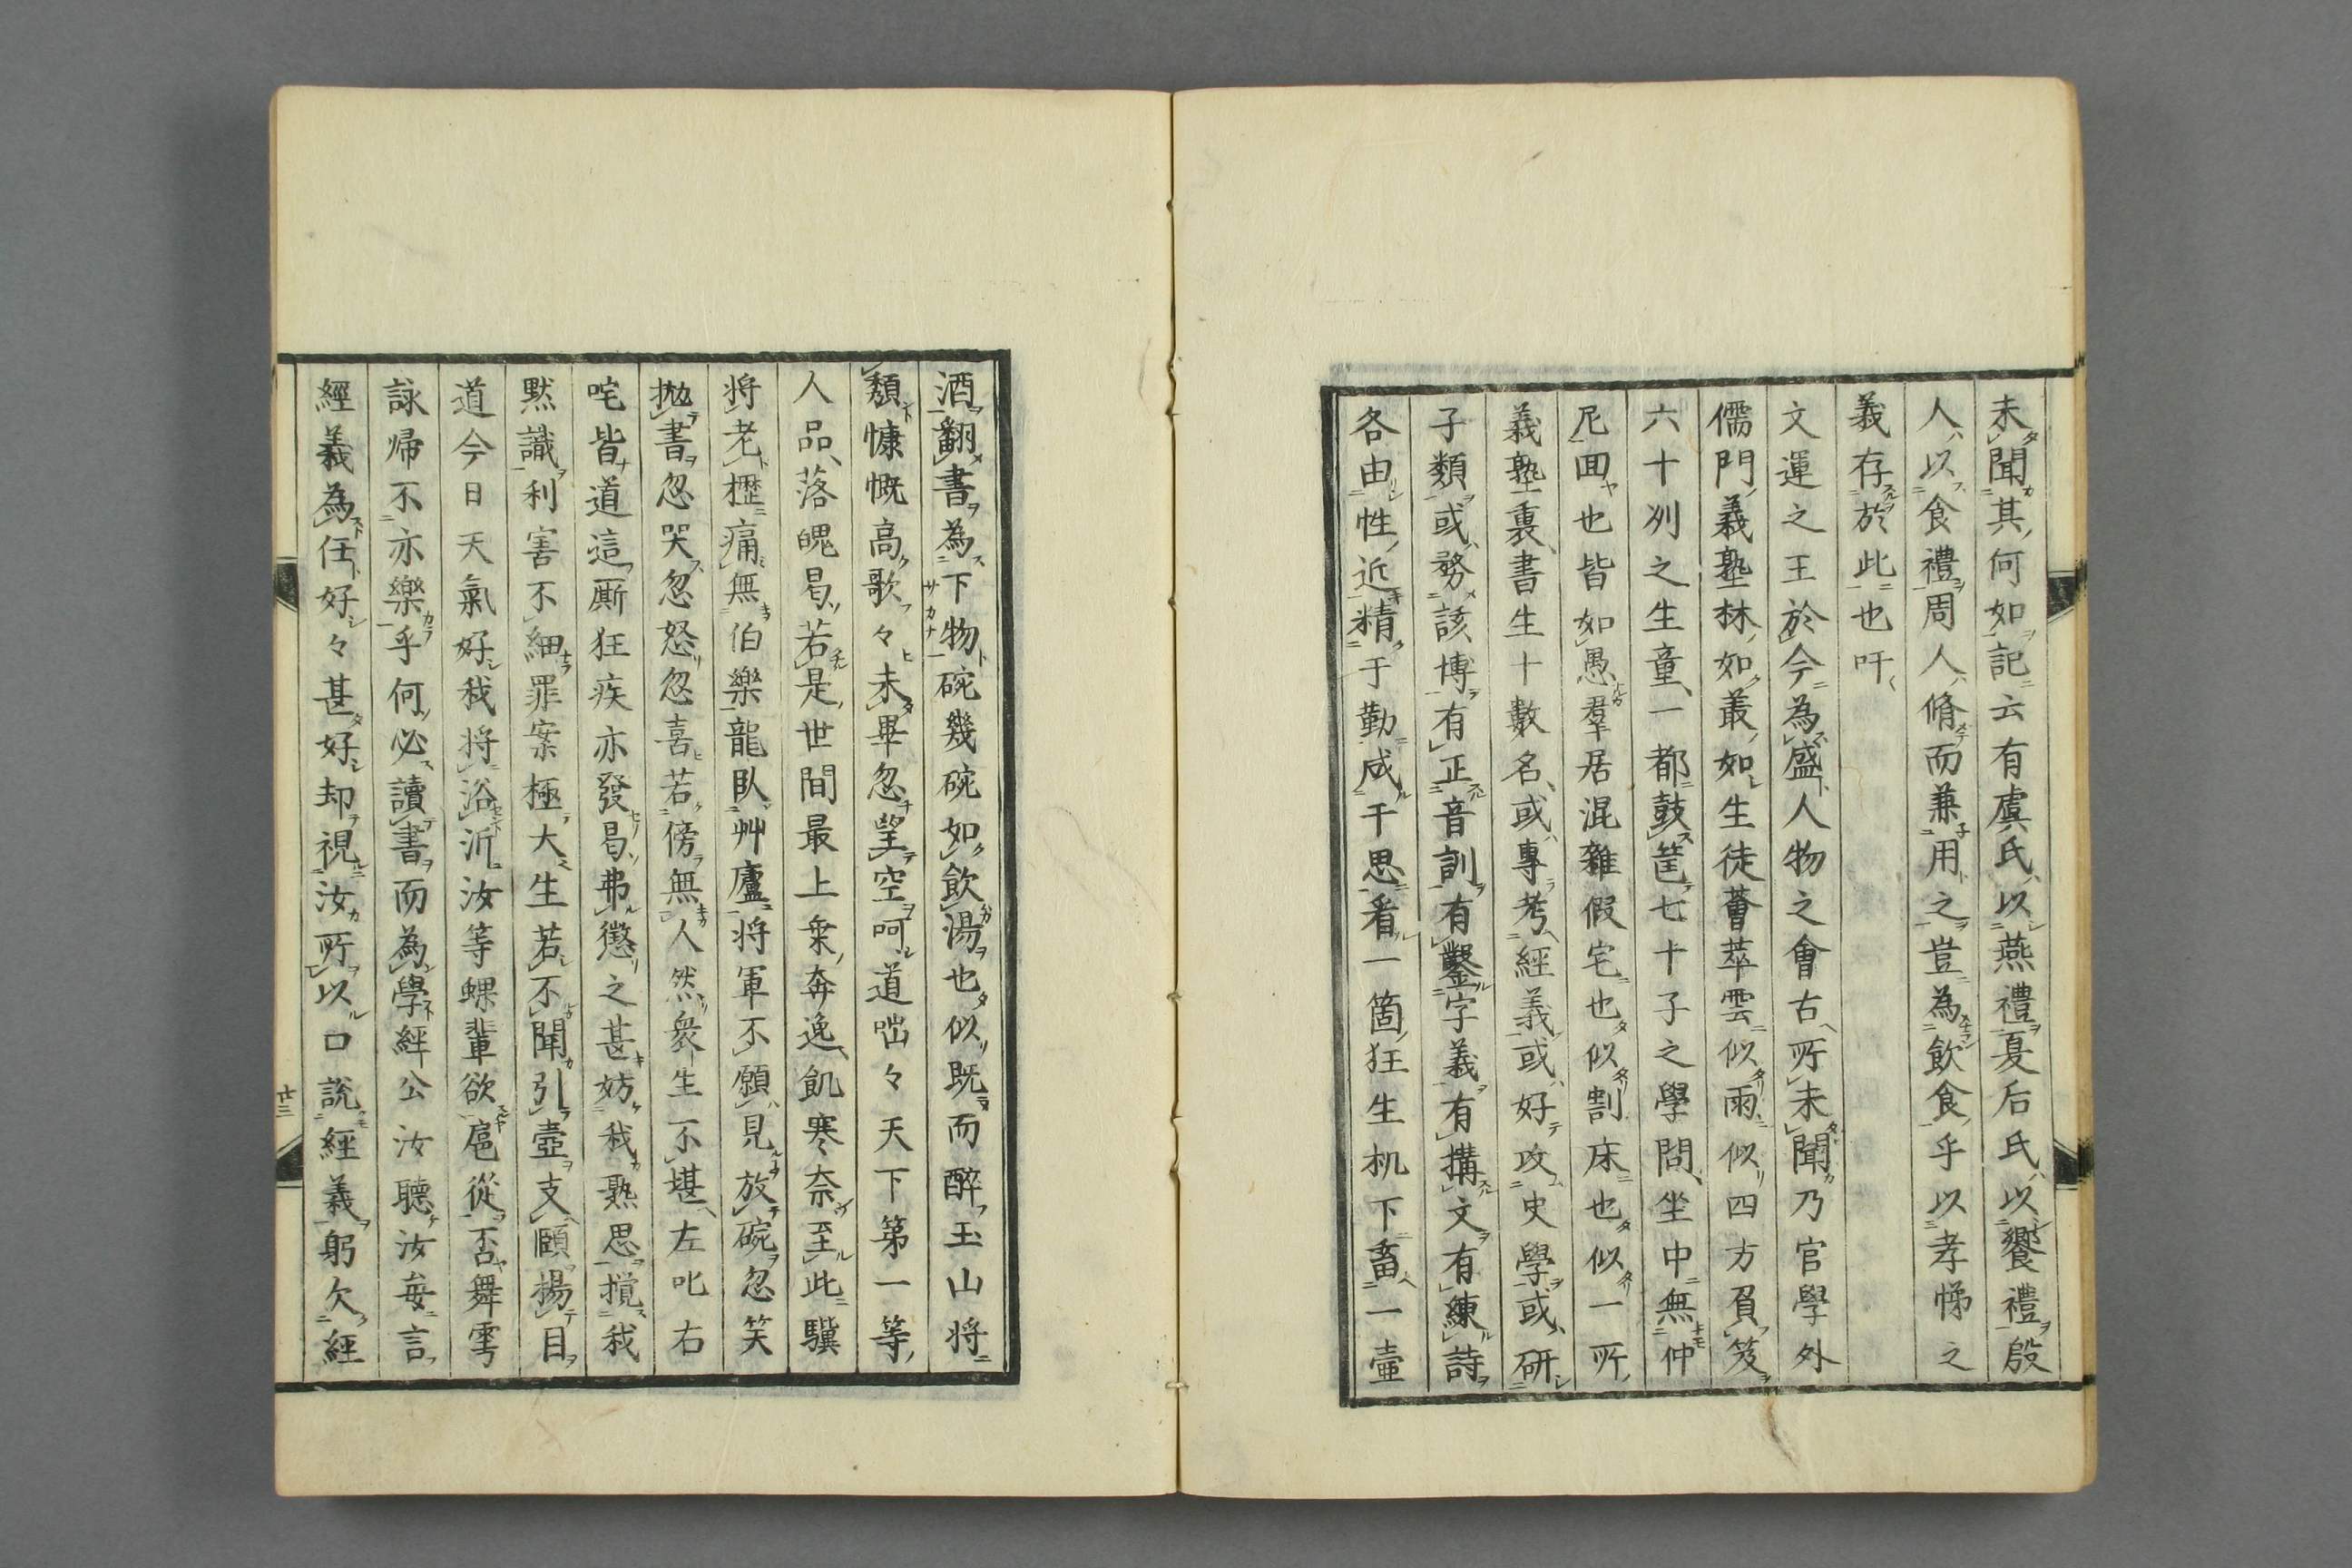 未聞其何如記云有虞氏以燕禮夏后氏以饗禮殷
人以食禮周人脩而兼用之豈為飲食乎以孝悌之
義存於此也吁
文運之王於今為盛人物之會古所未聞乃官學外
儒門義塾林如叢如生徒薈萃雲似雨似四方負笈
六十列之生童一都鼓篋七十子之學問坐中無仲
尼回也皆如愚羣居混雜假宅也似割床也似一所
義塾裏書生十數名或專考經義或好攻史學或研
子類或務該博有正音訓有鑿字義有搆文有練詩
各由性近精于勤成于思看一箇狂生机下畜一壷
酒翻書為下物碗幾碗如飲湯也似既而醉玉山将
頽慷慨高歌々未畢忽望空呵道咄々天下第一等
人品落魄曷若是世間最上乗奔逸飢寒奈至此驥
将老櫪痛無伯樂龍臥艸廬将軍不願見放碗忽笑
拋書忽哭忽怒忽喜若傍無人然衆生不堪左叱右
咤皆道這厮狂疾亦發曷弗懲之甚妨我熟思攪我
黙識利害不細罪案極大生若不聞引壺支頤揚目
道今日天氣好我将浴沂汝等蜾輩欲扈從否舞雩
詠帰不亦樂乎何必讀書而為學經公汝聽汝毎言
經義為任好々甚好却視汝所以口説經義躬欠經
廿三